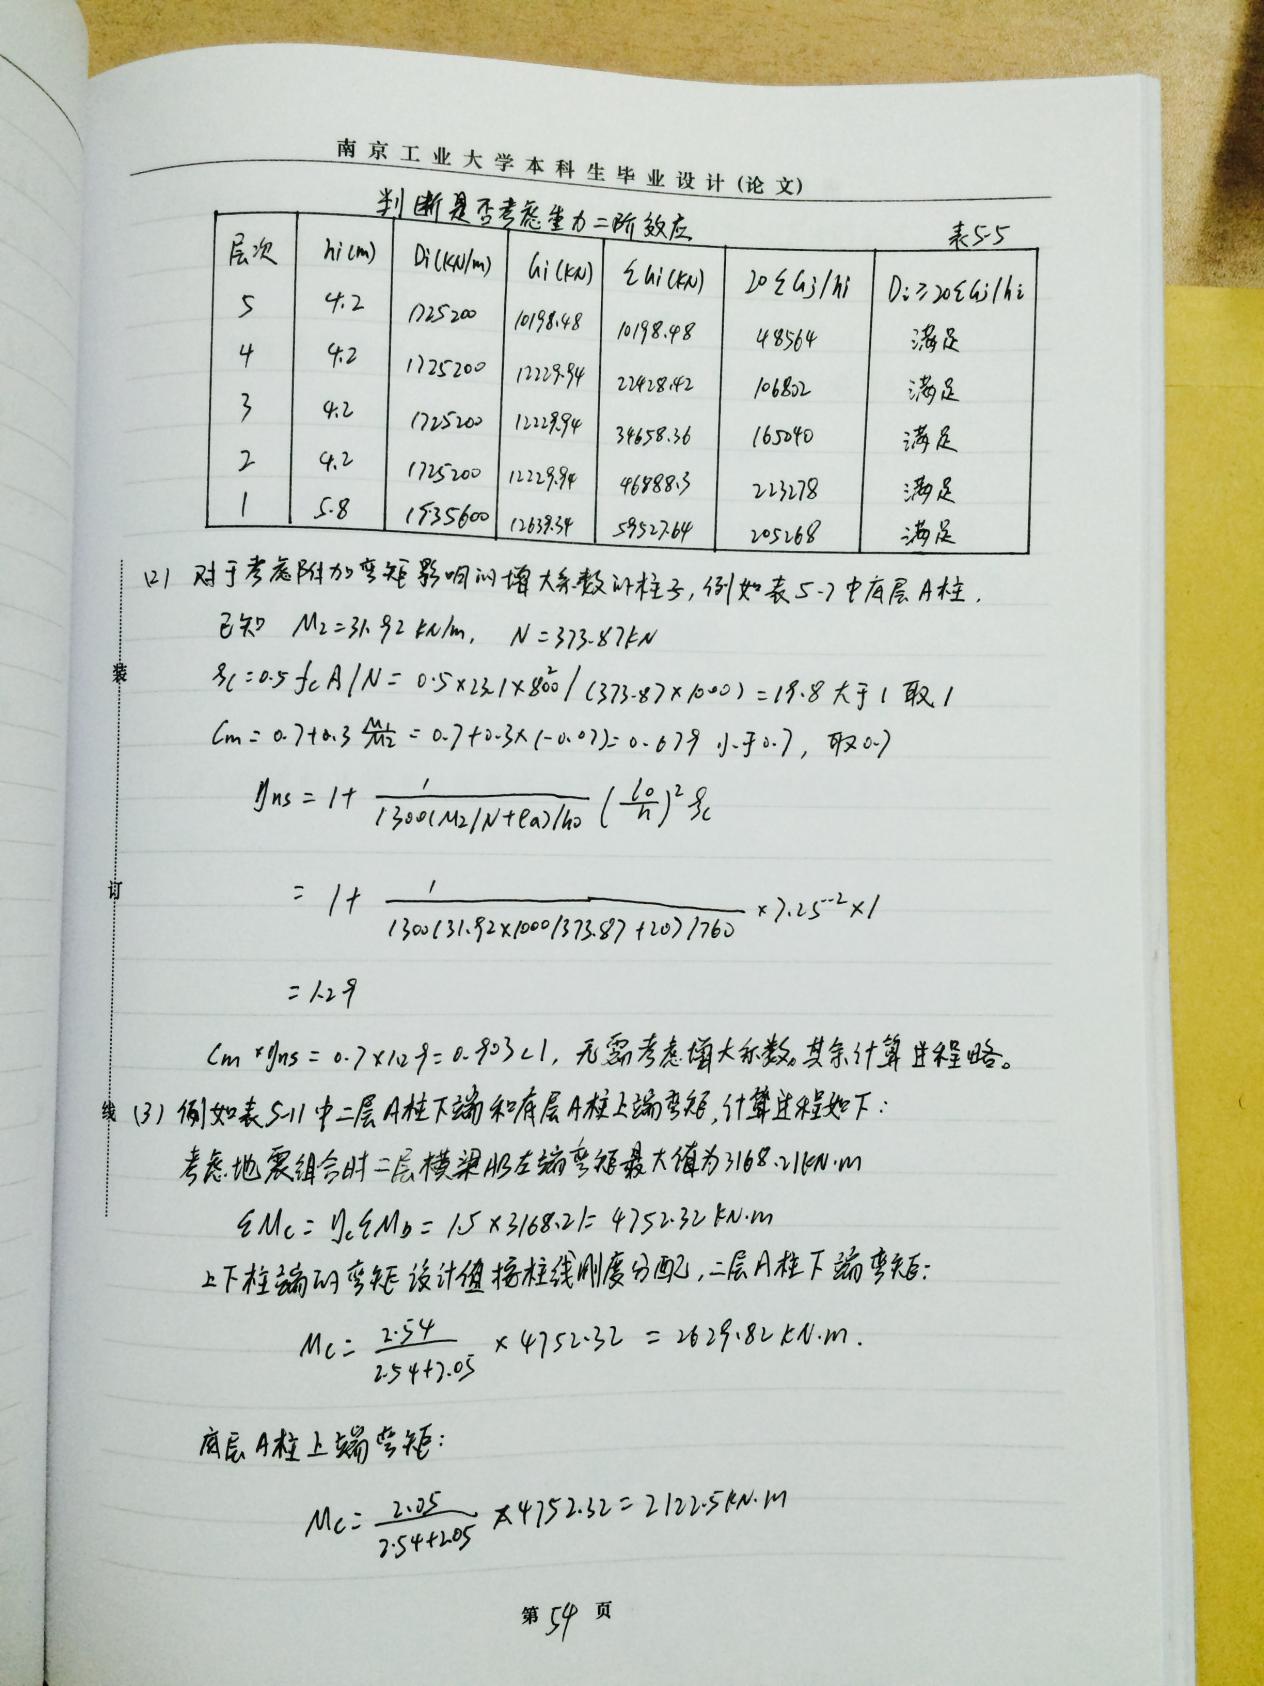 南京工业大学本科生毕业设计(论文)
判断是否考虑重力二阶效应
表5-5
层次 hi(m) Di(KN/m) Gi(KN) ΣGi(KN) 20ΣGj/hi Di≥20ΣGj/hi
5 4.2 1725200 10198.48 10198.48 48564 满足
4 4.2 1725200 12229.94 22428.42 106802 满足
3 4.2 1725200 12229.94 34658.36 165040 满足
2 4.2 1725200 12229.94 46888.3 223278 满足
1 5.8 1935600 12639.34 59527.64 205268 满足
(2) 对于考虑附加弯矩影响的增大系数的柱子,例如表5-7中底层A柱.
已知 M2=31.92 KN/m, N=373.87KN
ζc=0.5fcA/N=0.5×23.1×800²/(373.87×1000)=19.8 大于1 取1
Cm=0.7+0.3 M1/M2=0.7+0.3×(-0.07)=0.679 小于0.7, 取0.7
ηns=1+ 1/1300(M2/N+ea)/h0 (l0/h)² ζc
=1+ 1/1300(31.92×1000/373.87+20)/760 ×7.25⁻²×1
=1.29
Cm×ηns=0.7×1.29=0.903<1, 无需考虑增大系数。其余计算过程略。
(3) 例如表5-11中二层A柱下端和底层A柱上端弯矩,计算过程如下:
考虑地震组合时二层横梁AB左端弯矩最大值为3168.21KN·m
ΣMc=ηcΣMb=1.5×3168.21=4752.32KN·m
上下柱端的弯矩设计值按柱线刚度分配,二层A柱下端弯矩:
Mc= 2.54/2.54+2.05 ×4752.32 = 2629.82KN·m.
底层A柱上端弯矩:
Mc= 2.05/2.54+2.05 ×4752.32=2122.5KN·m
第54页
装
订
线